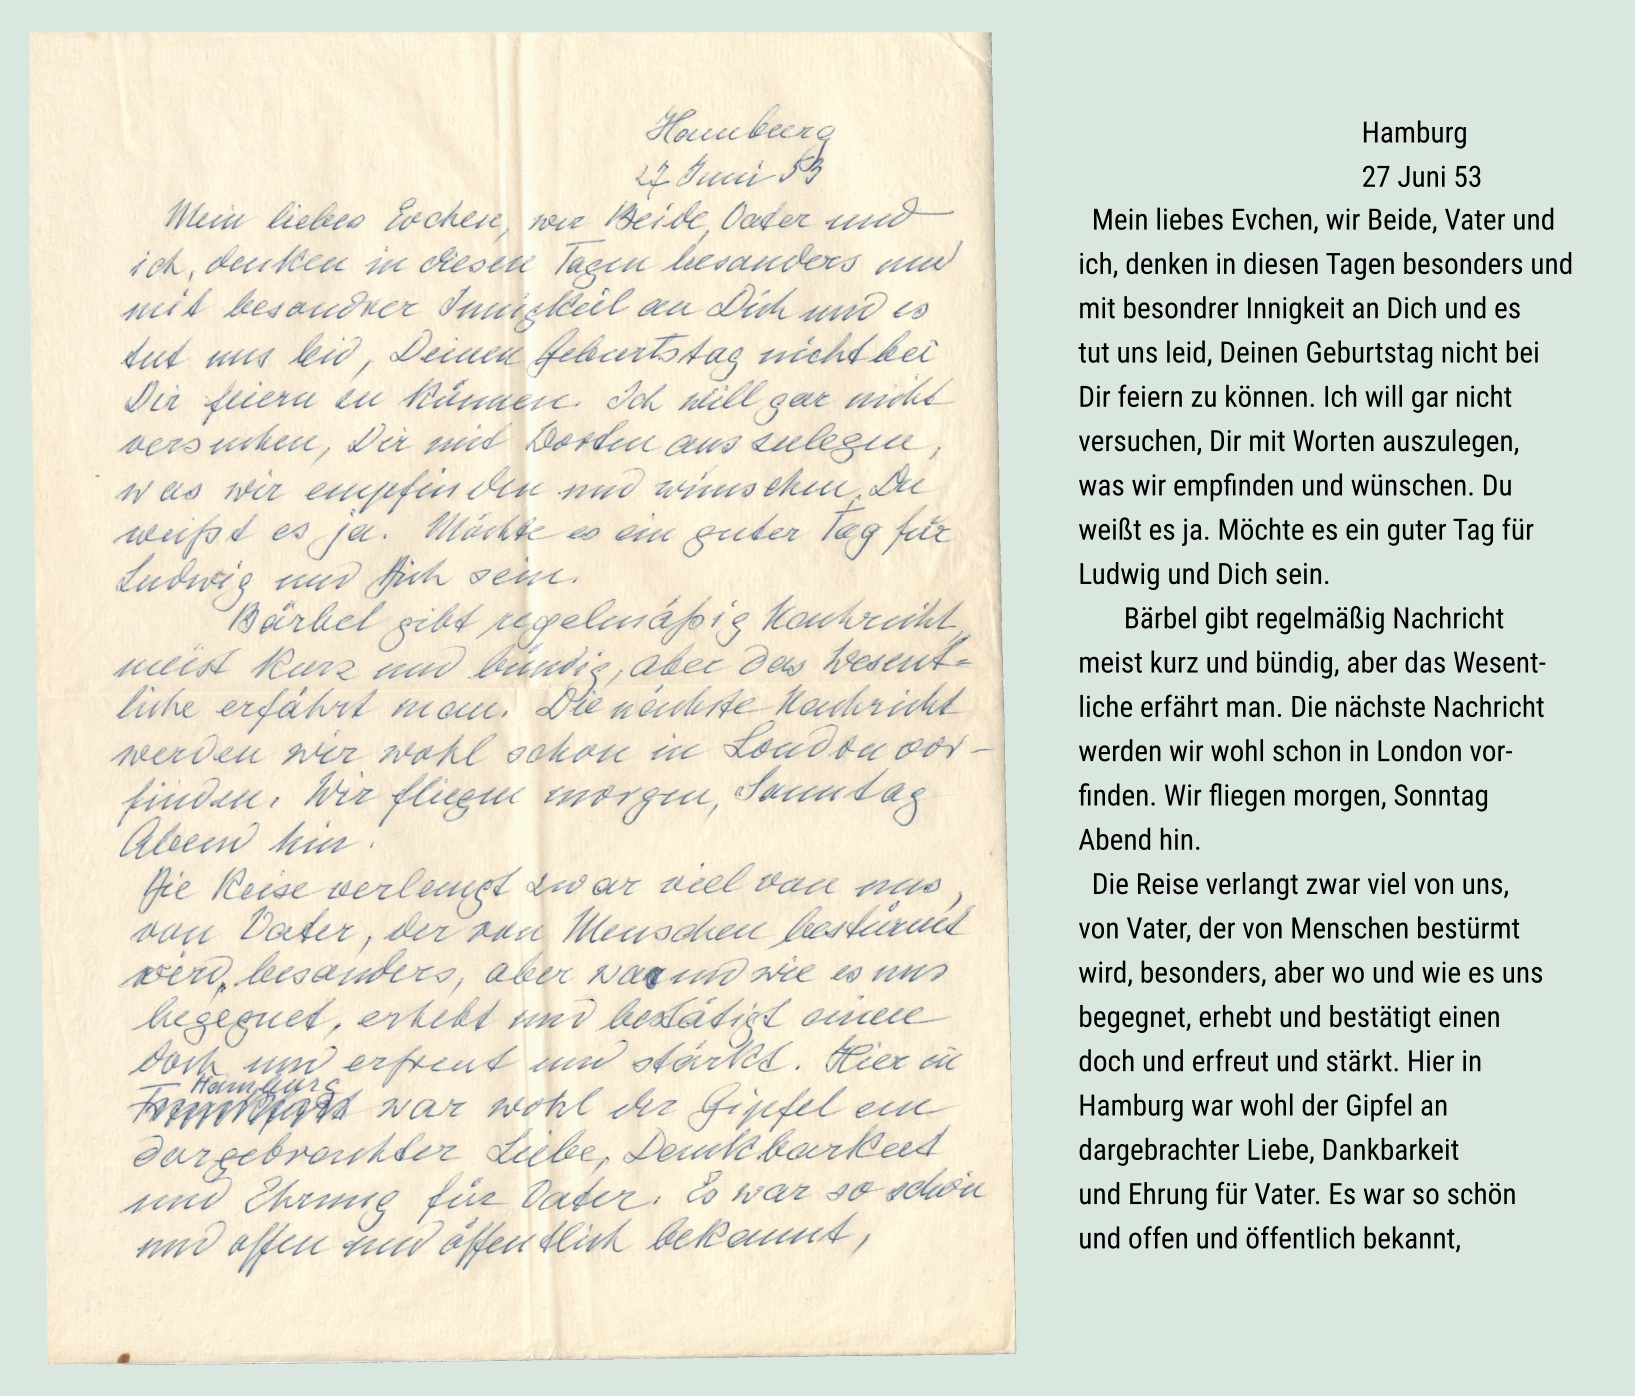 Hamburg
27 Juni 53
Mein liebes Evchen, wir Beide, Vater und
ich, denken in diesen Tagen besonders und
mit besondrer Innigkeit an Dich und es
tut uns leid, Deinen Geburtstag nicht bei
Dir feiern zu können. Ich will gar nicht
versuchen, Dir mit Worten auszulegen,
was wir empfinden und wünschen. Du
weißt es ja. Möchte es ein guter Tag für
Ludwig und Dich sein.
Bärbel gibt regelmäßig Nachricht,
meist kurz und bündig, aber das Wesent=
liche erfährt man. Die nächste Nachricht
werden wir wohl schon in London vor-
finden. Wir fliegen morgen, Sonntag
Abend hin.
Die Reise verlangt zwar viel von uns,
von Vater, der von Menschen bestürmt
wird, besonders, aber wo und wie es uns
begegnet, erhebt und bestätigt einen
doch und erfreut und stärkt. Hier in
Hamburg
war wohl der Gipfel an
dargebrachter Liebe, Dankbarkeit
und Ehrung für Vater. Es war so schön
und offen und öffentlich bekannt,
Hamburg
27 Juni 53
Mein liebes Evchen, wir Beide, Vater und
ich, denken in diesen Tagen besonders und
mit besondrer Innigkeit an Dich und es
tut uns leid, Deinen Geburtstag nicht bei
Dir feiern zu können. Ich will gar nicht
versuchen, Dir mit Worten auszulegen,
was wir empfinden und wünschen. Du
weißt es ja. Möchte es ein guter Tag für
Ludwig und Dich sein.
Bärbel gibt regelmäßig Nachricht
meist kurz und bündig, aber das Wesent-
liche erfährt man. Die nächste Nachricht
werden wir wohl schon in London vor-
finden. Wir fliegen morgen, Sonntag
Abend hin.
Die Reise verlangt zwar viel von uns,
von Vater, der von Menschen bestürmt
wird, besonders, aber wo und wie es uns
begegnet, erhebt und bestätigt einen
doch und erfreut und stärkt. Hier in
Hamburg war wohl der Gipfel an
dargebrachter Liebe, Dankbarkeit
und Ehrung für Vater. Es war so schön
und offen und öffentlich bekannt,